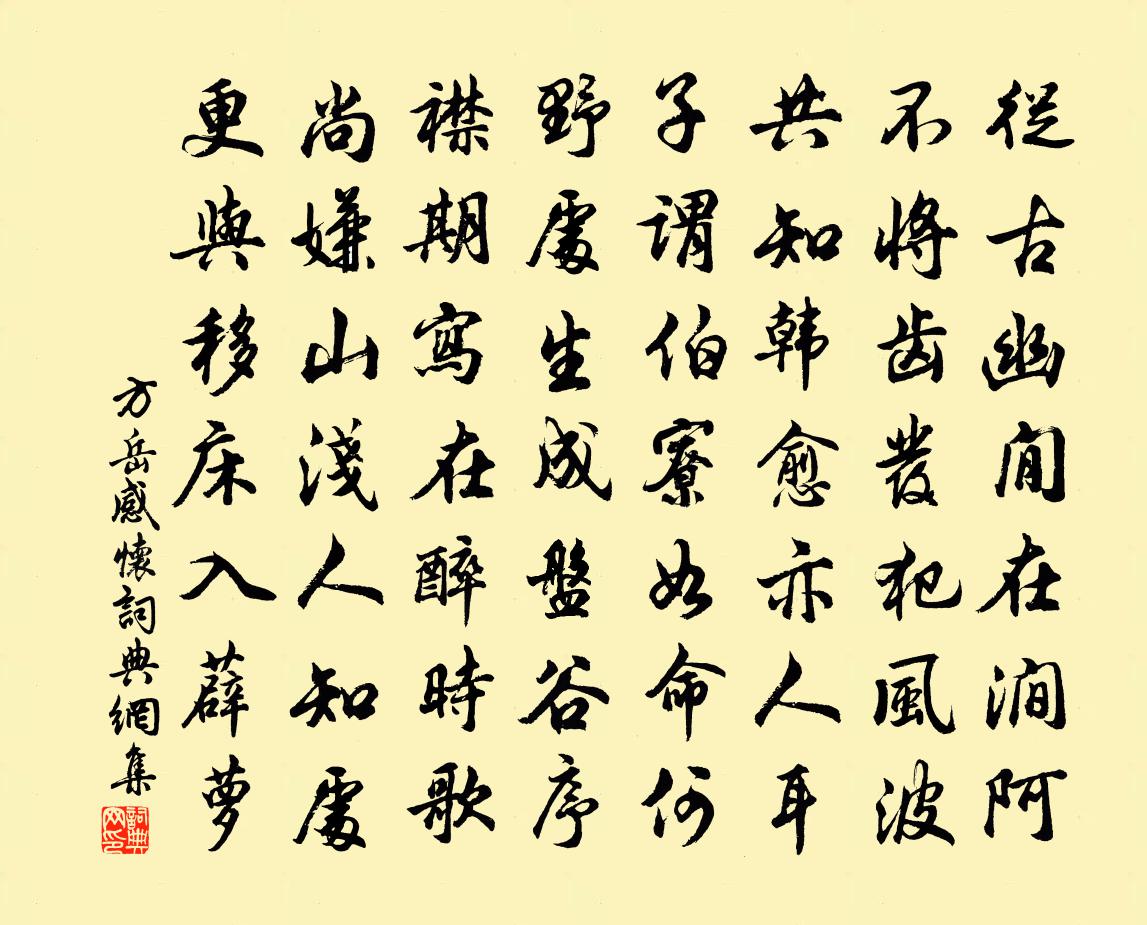 從古幽閒在澗阿
不將齒發犯風波
共知韓愈亦人耳
子謂伯寮如命何
野處生成盤谷序
襟期寫在醉時歌
尚嫌山淺人知處
更與移床入薜蘿
方岳感懷詞典網集
詞典網印